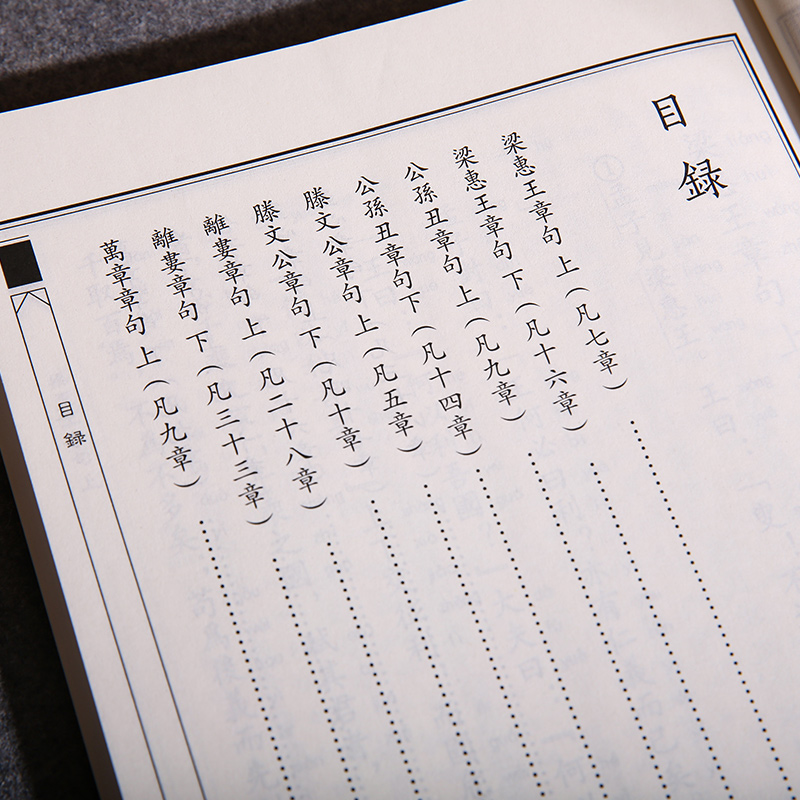 目錄
梁惠王章句 上（凡七章）
梁惠王章句 下（凡十六章）
公孫丑章句 上（凡九章）
公孫丑章句 下（凡十四章）
滕文公章句 上（凡五章）
滕文公章句 下（凡十章）
離婁章句 上（凡二十八章）
離婁章句 下（凡三十三章）
萬章章句 上（凡九章）
目錄